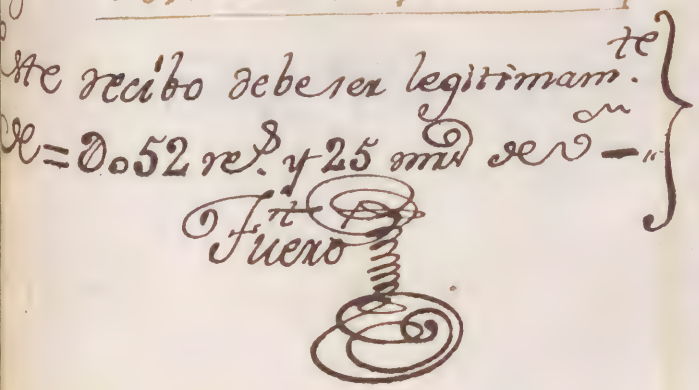 Ste recibo debe ser legitimam.te
de = Do52 rs. y 25 mrs de von —
Fuero